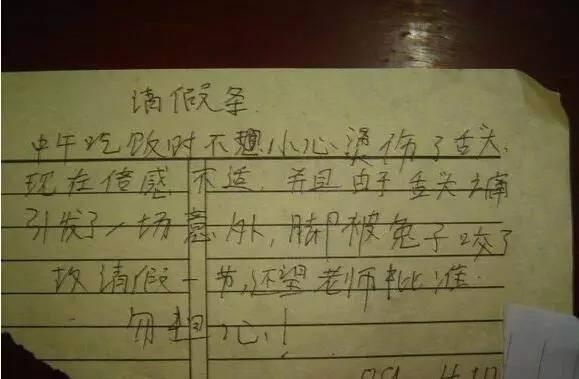 请假条
中午吃饭时不想小心烫伤了舌头,
现在倍感不适,并且由于舌头之痛
引发了一场意外,脚被兔子咬了
故请假一节,还望老师批准.
勿担心!